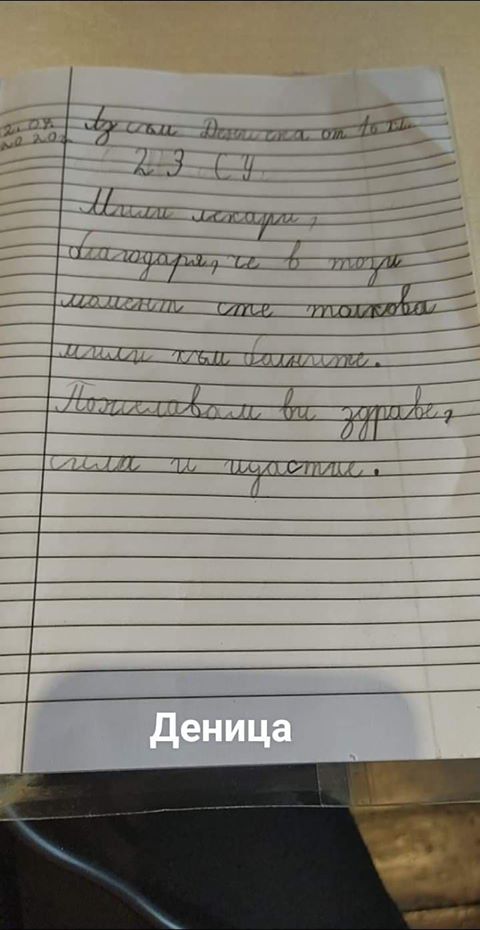 Аз съм Деница от 1б кл.
23 СУ
Мили лекари,
благодаря, че в този
момент сте толкова
мили към болните.
Пожелавам ви здраве,
сила и щастие.
Деница